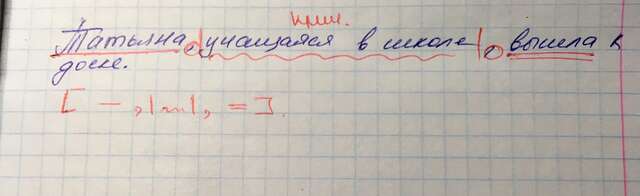 прич.
Татьяна, |учащаяся в школе|, вышла к
доске.
[ — , |~~| , = ].